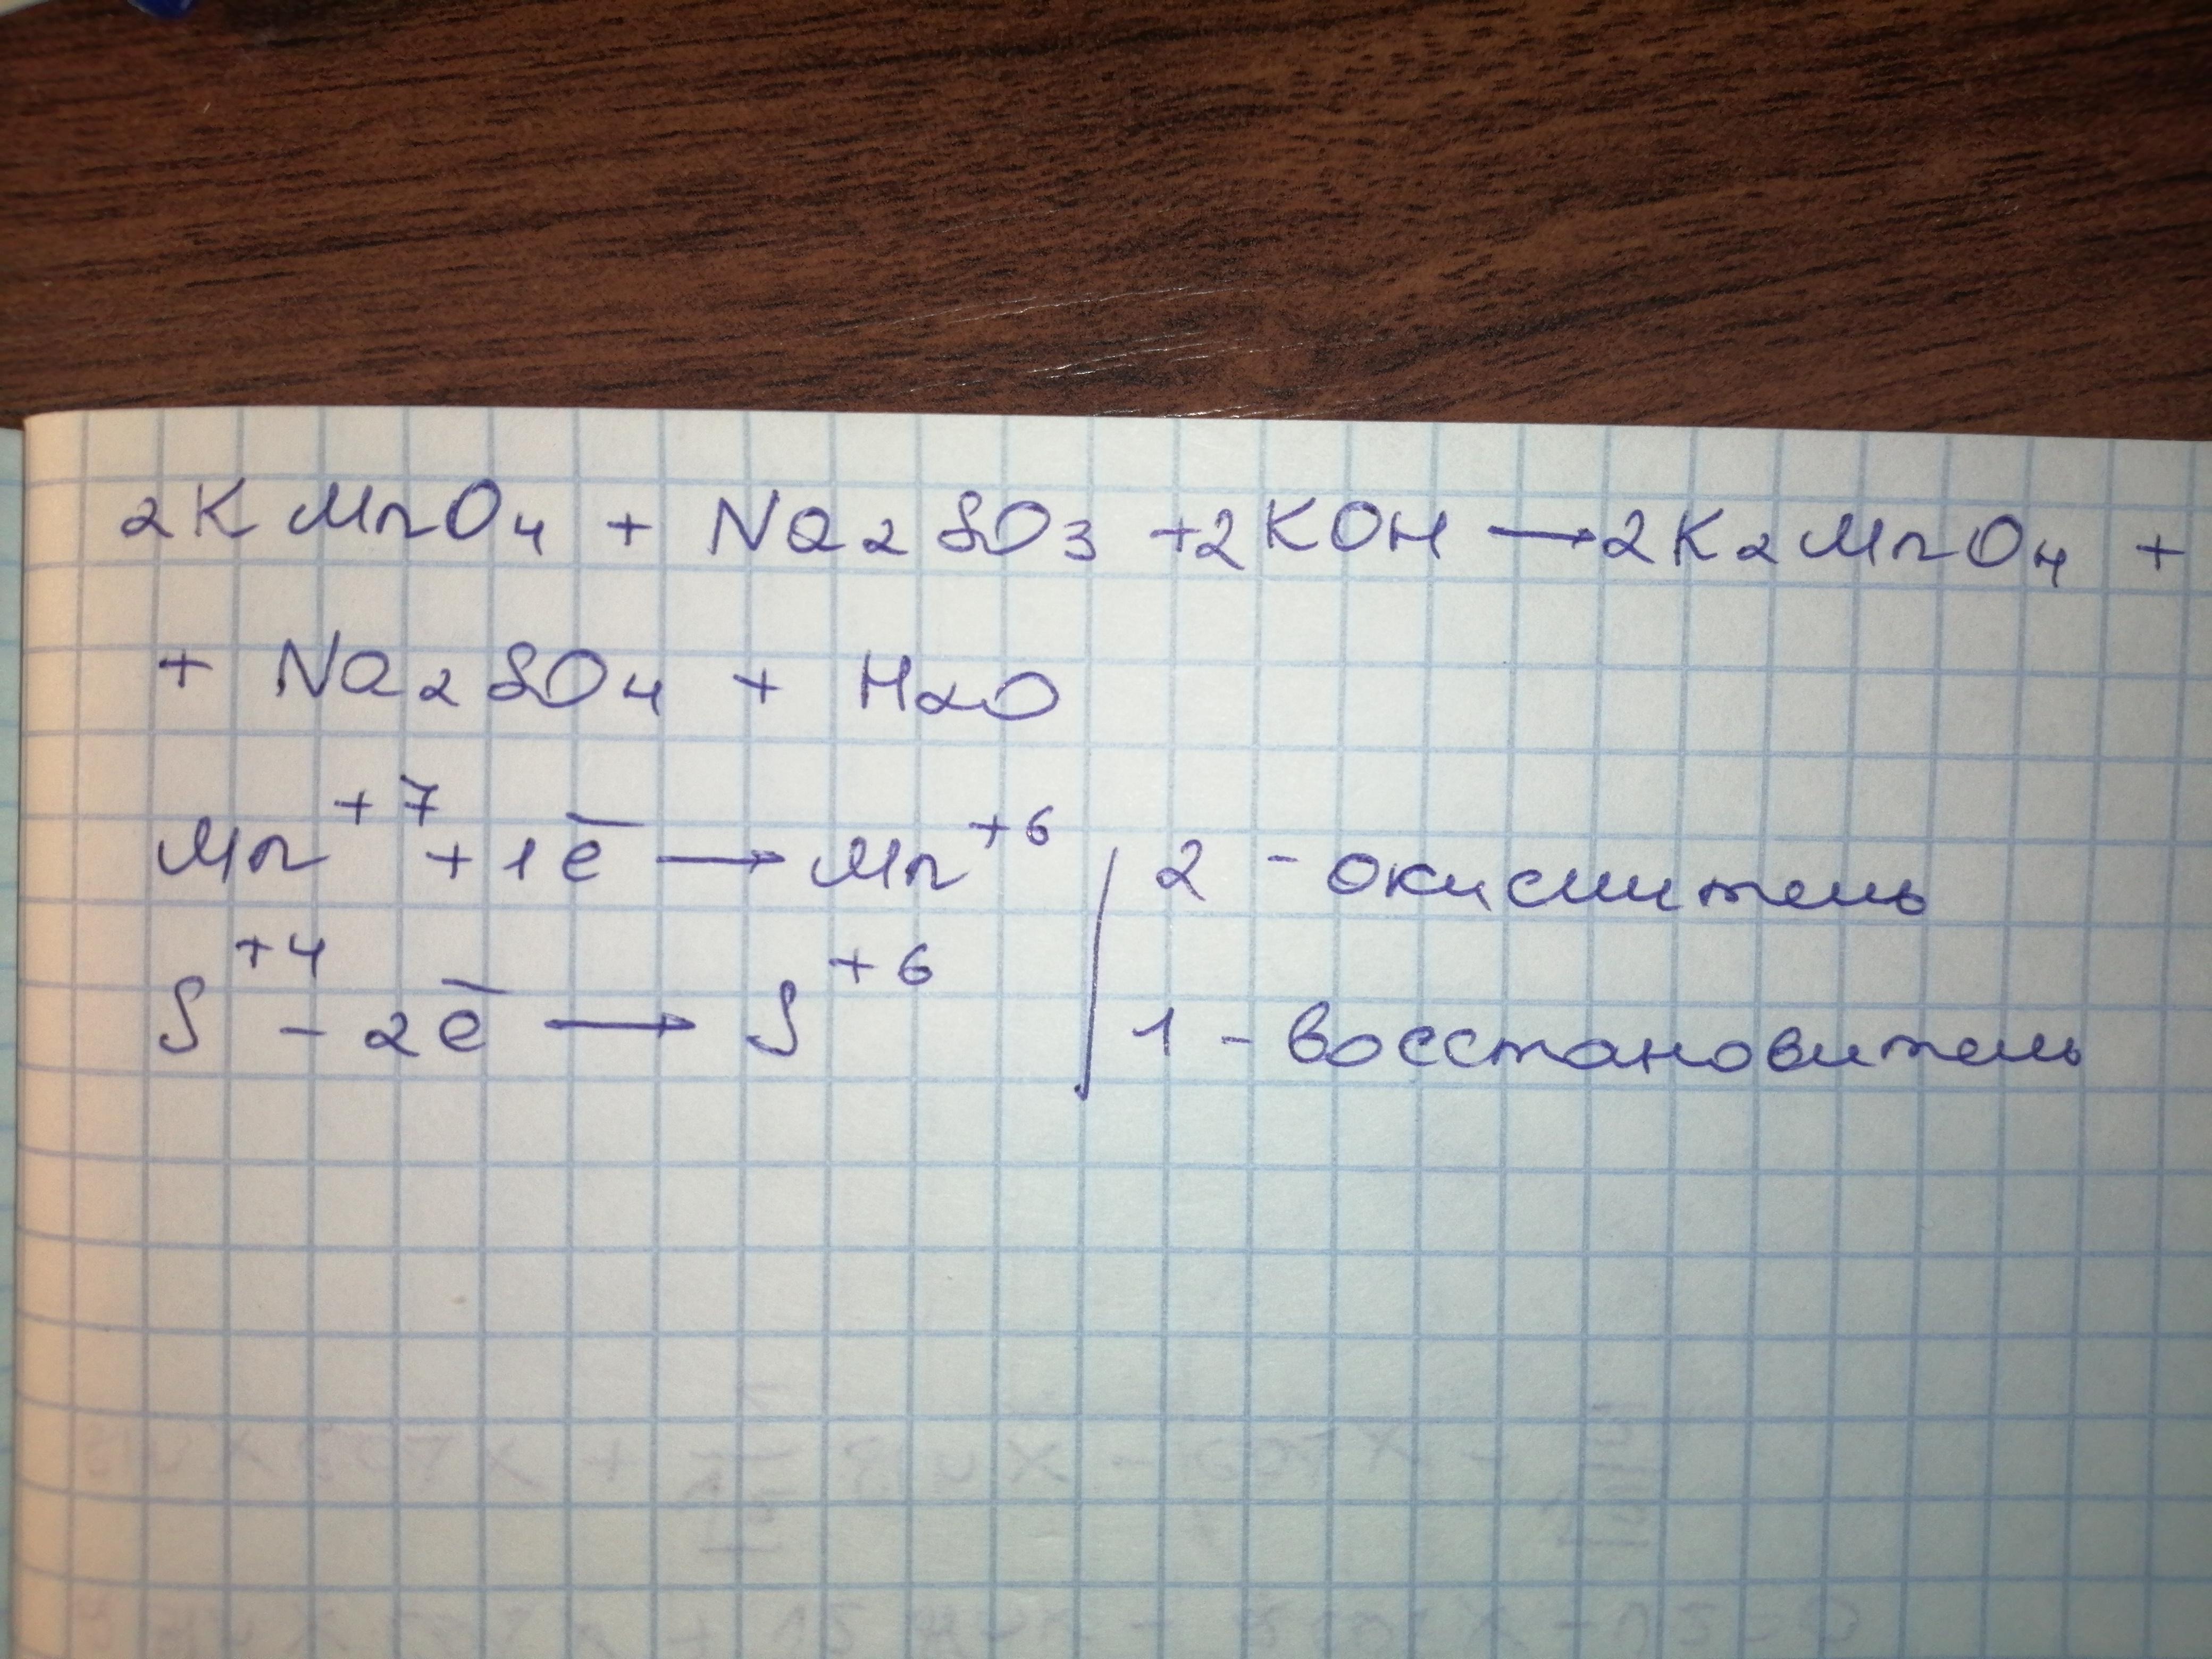 2KMnO₄ + Na₂SO₃ + 2KOH → 2K₂MnO₄ +
+ Na₂SO₄ + H₂O
Mn⁺⁷ + 1ē → Mn⁺⁶ | 2 - окислитель
S⁺⁴ - 2ē → S⁺⁶ | 1 - восстановитель